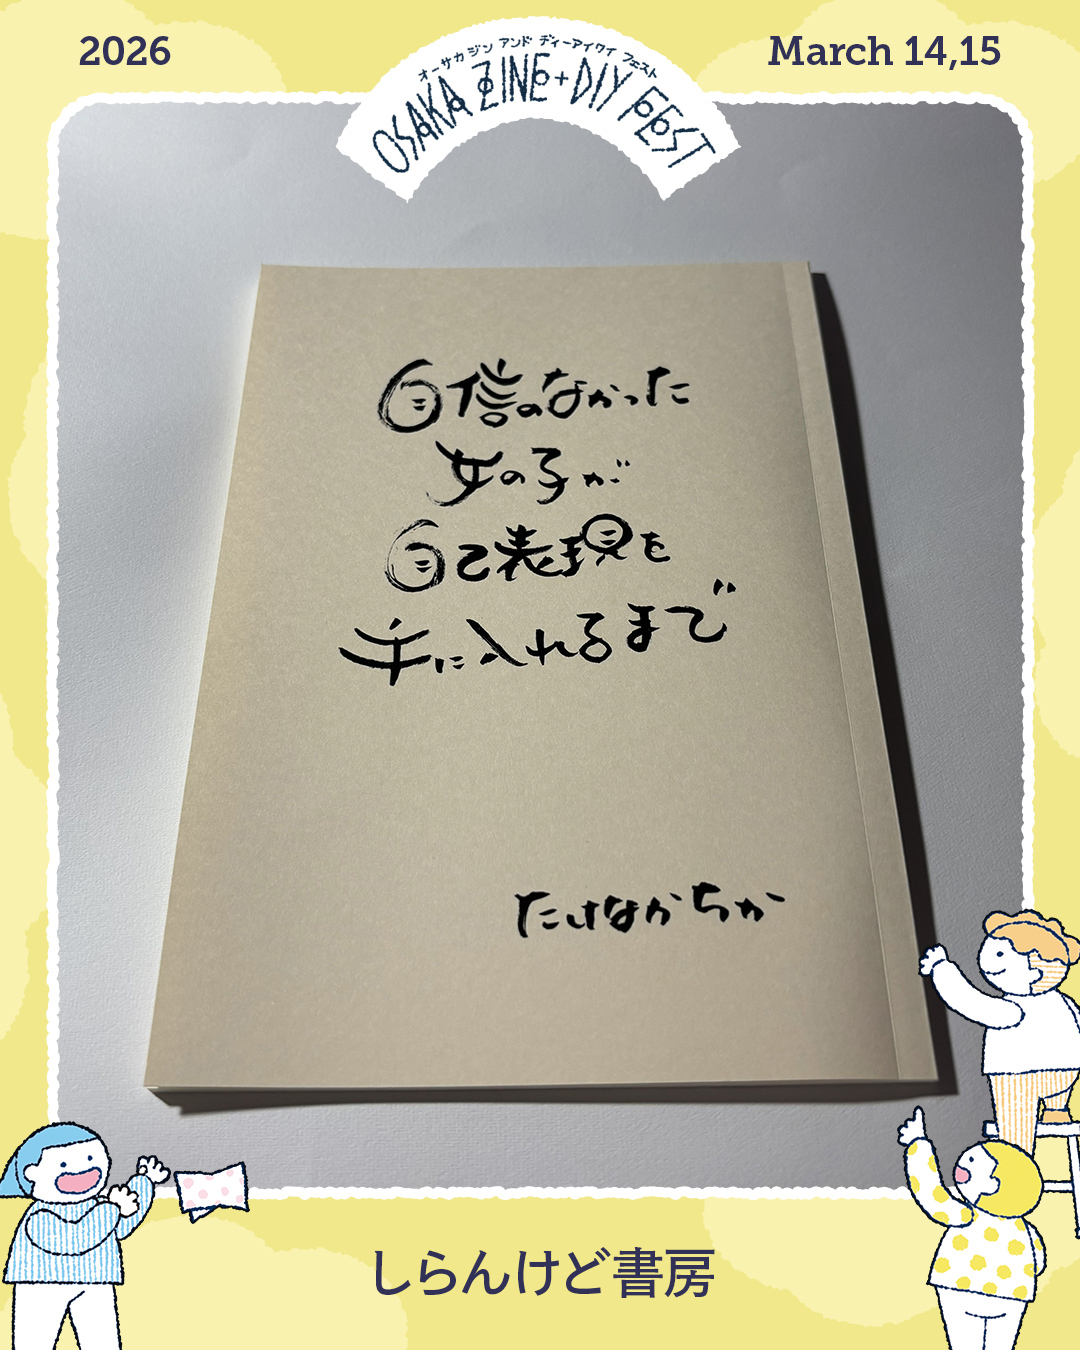 2026
オーサカ ジン アンド ディーアイワイ フェスト
OSAKA ZINE+DIY FEST
March 14,15
自信のなかった
女の子が
自己表現を
手に入れるまで
たけなかちか
しらんけど書房